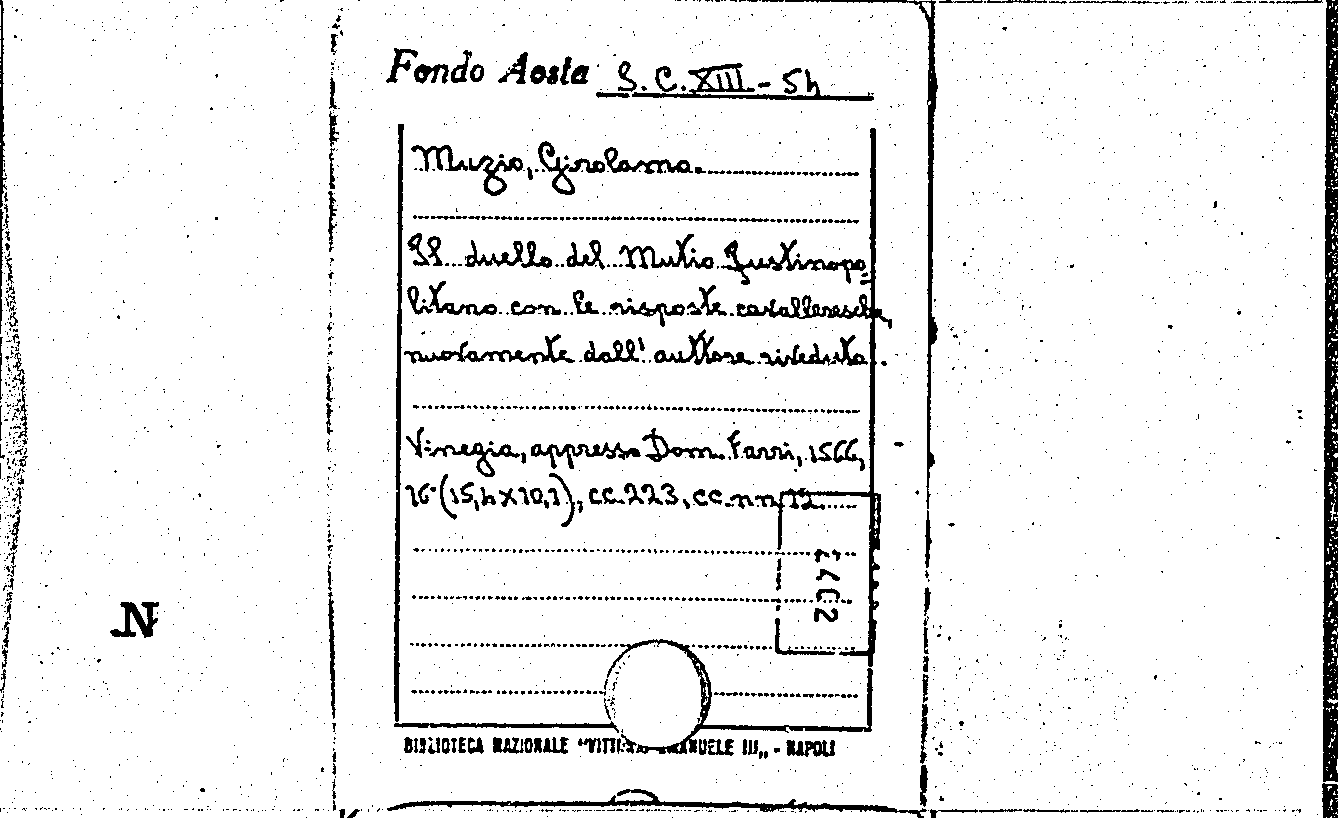 Fondo Aosta S.C. XIII - 5h
Muzio, Girolamo.
Il duello del Mutio Justinopo=
litano con le risposte cavalleresche,
nuovamente dall' auttore riveduto.
Vinegia, appresso Dom. Farri, 1566,
16° (15,h x 10,1), cc. 223, cc. nn 12.
N
BIBLIOTECA NAZIONALE "VITT EMANUELE III„ - NAPOLI